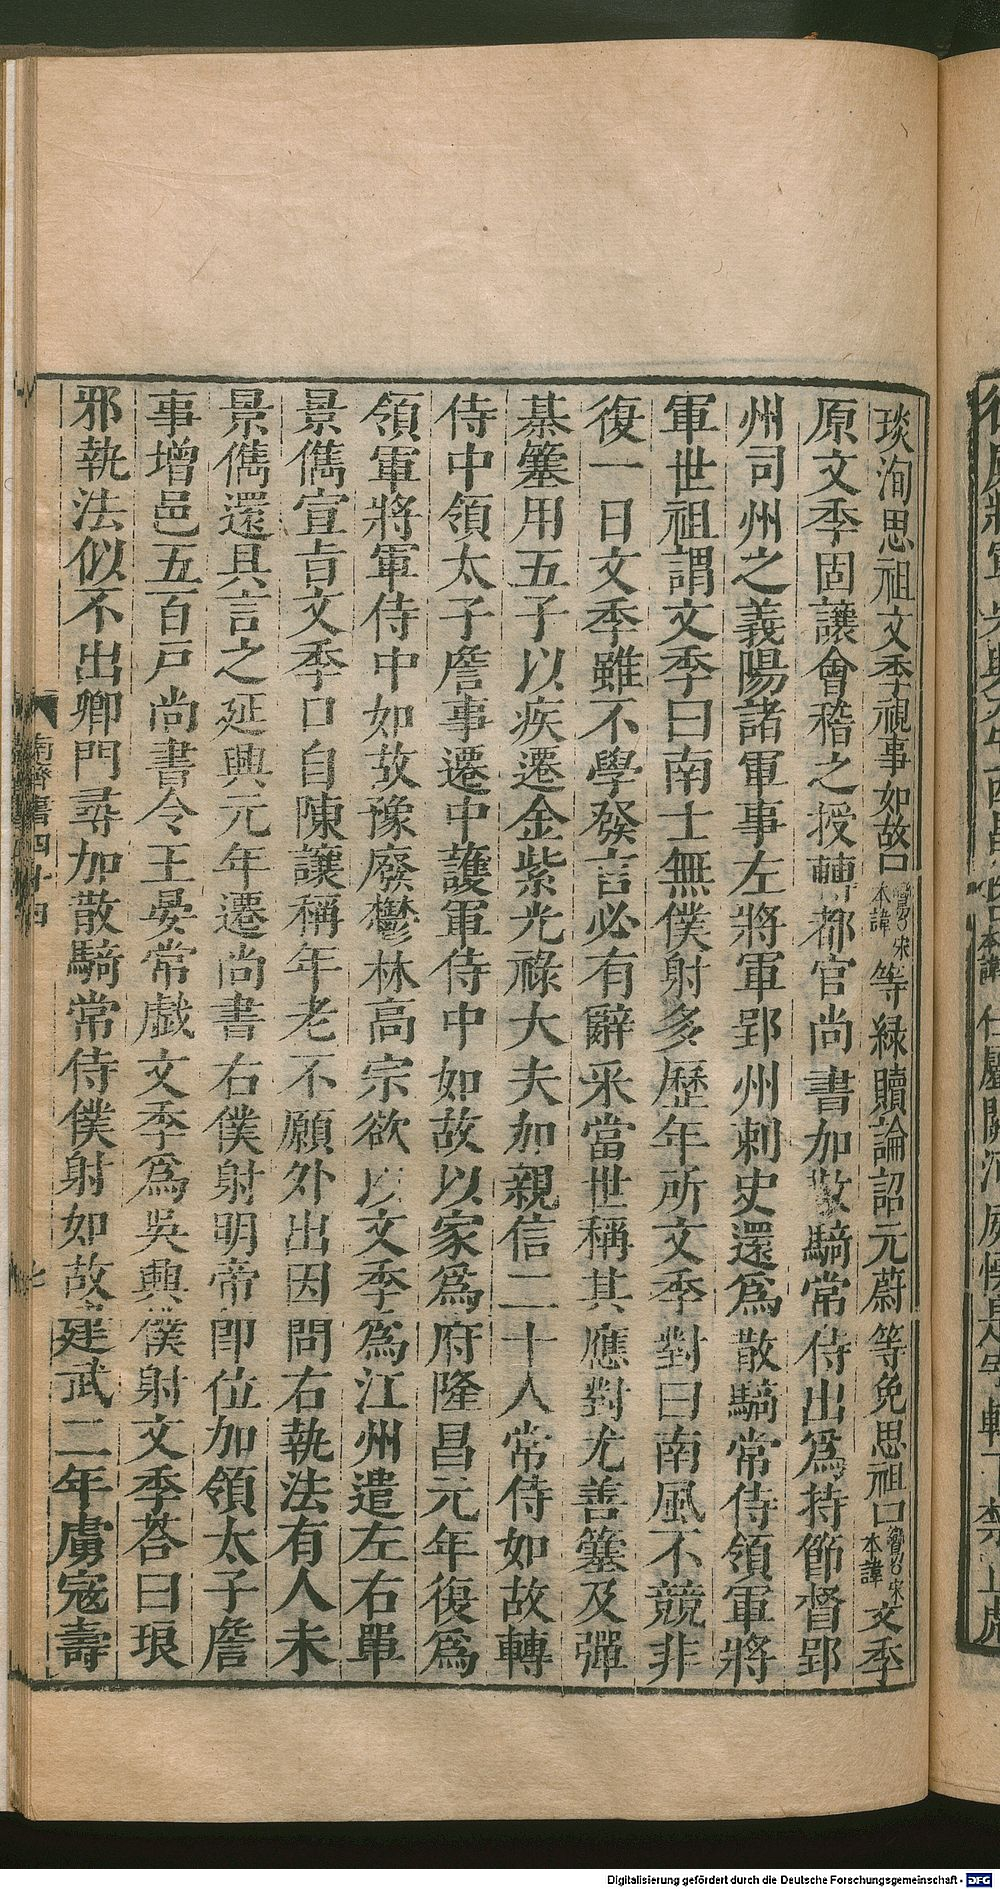 琰洵思祖文季視事如故口鸞犯宋本諱等緣贖論詔元蔚等免思祖口鸞犯宋本諱文季
原文季固讓會稽之授轉都官尚書加散騎常侍出爲持節督郢
州司州之義陽諸軍事左將軍郢州刺史還爲散騎常侍領軍將
軍世祖謂文季曰南士無僕射多歷年所文季對曰南風不競非
復一日文季雖不學發言必有辭采當世稱其應對尤善簺及彈
棊簺用五子以疾遷金紫光祿大夫加親信二十人常侍如故轉
侍中領太子詹事遷中護軍侍中如故以家爲府隆昌元年復爲
領軍將軍侍中如故豫廢鬱林高宗欲以文季爲江州遣左右單
景儁宣旨文季口自陳讓稱年老不願外出因問右執法有人未
景儁還具言之延興元年遷尚書右僕射明帝即位加領太子詹
事增邑五百戶尚書令王晏常戲文季爲吳興僕射文季荅曰琅
邪執法似不出卿門尋加散騎常侍僕射如故建武二年虜寇壽
南齊書四十四
七
Digitalisierung gefördert durch die Deutsche Forschungsgemeinschaft - DFG